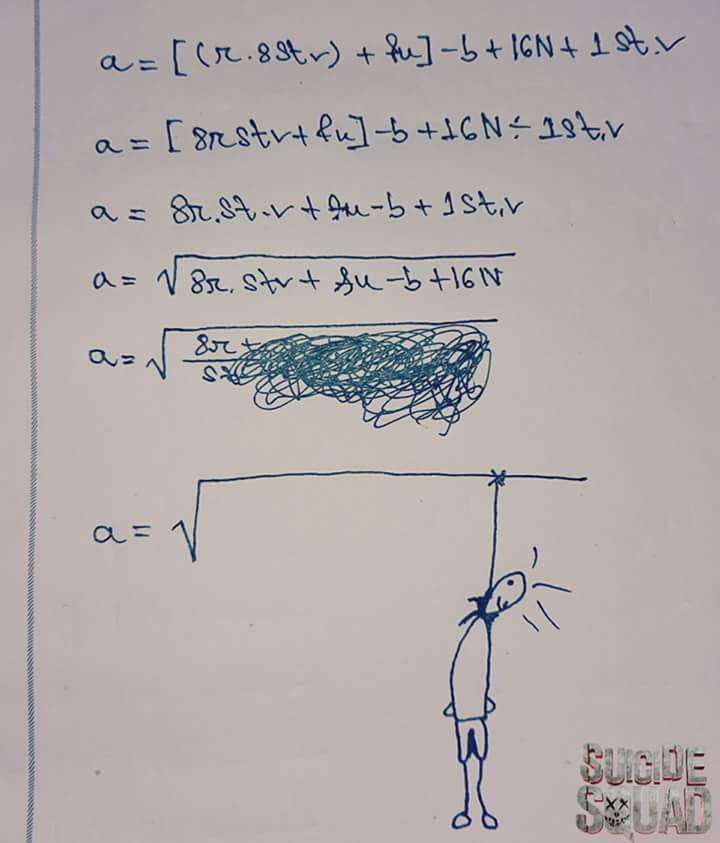 a = [(r. 8St v) + fu] - b + 16N + 1 st. v
a = [8r stv + fu] - b + 16N ÷ 1st, v
a = 8r. St. v + fu - b + 1 St, v
a = √8r. stv + fu - b + 16N
a = √8r +
St
a = √
SUICIDE
SQUAD